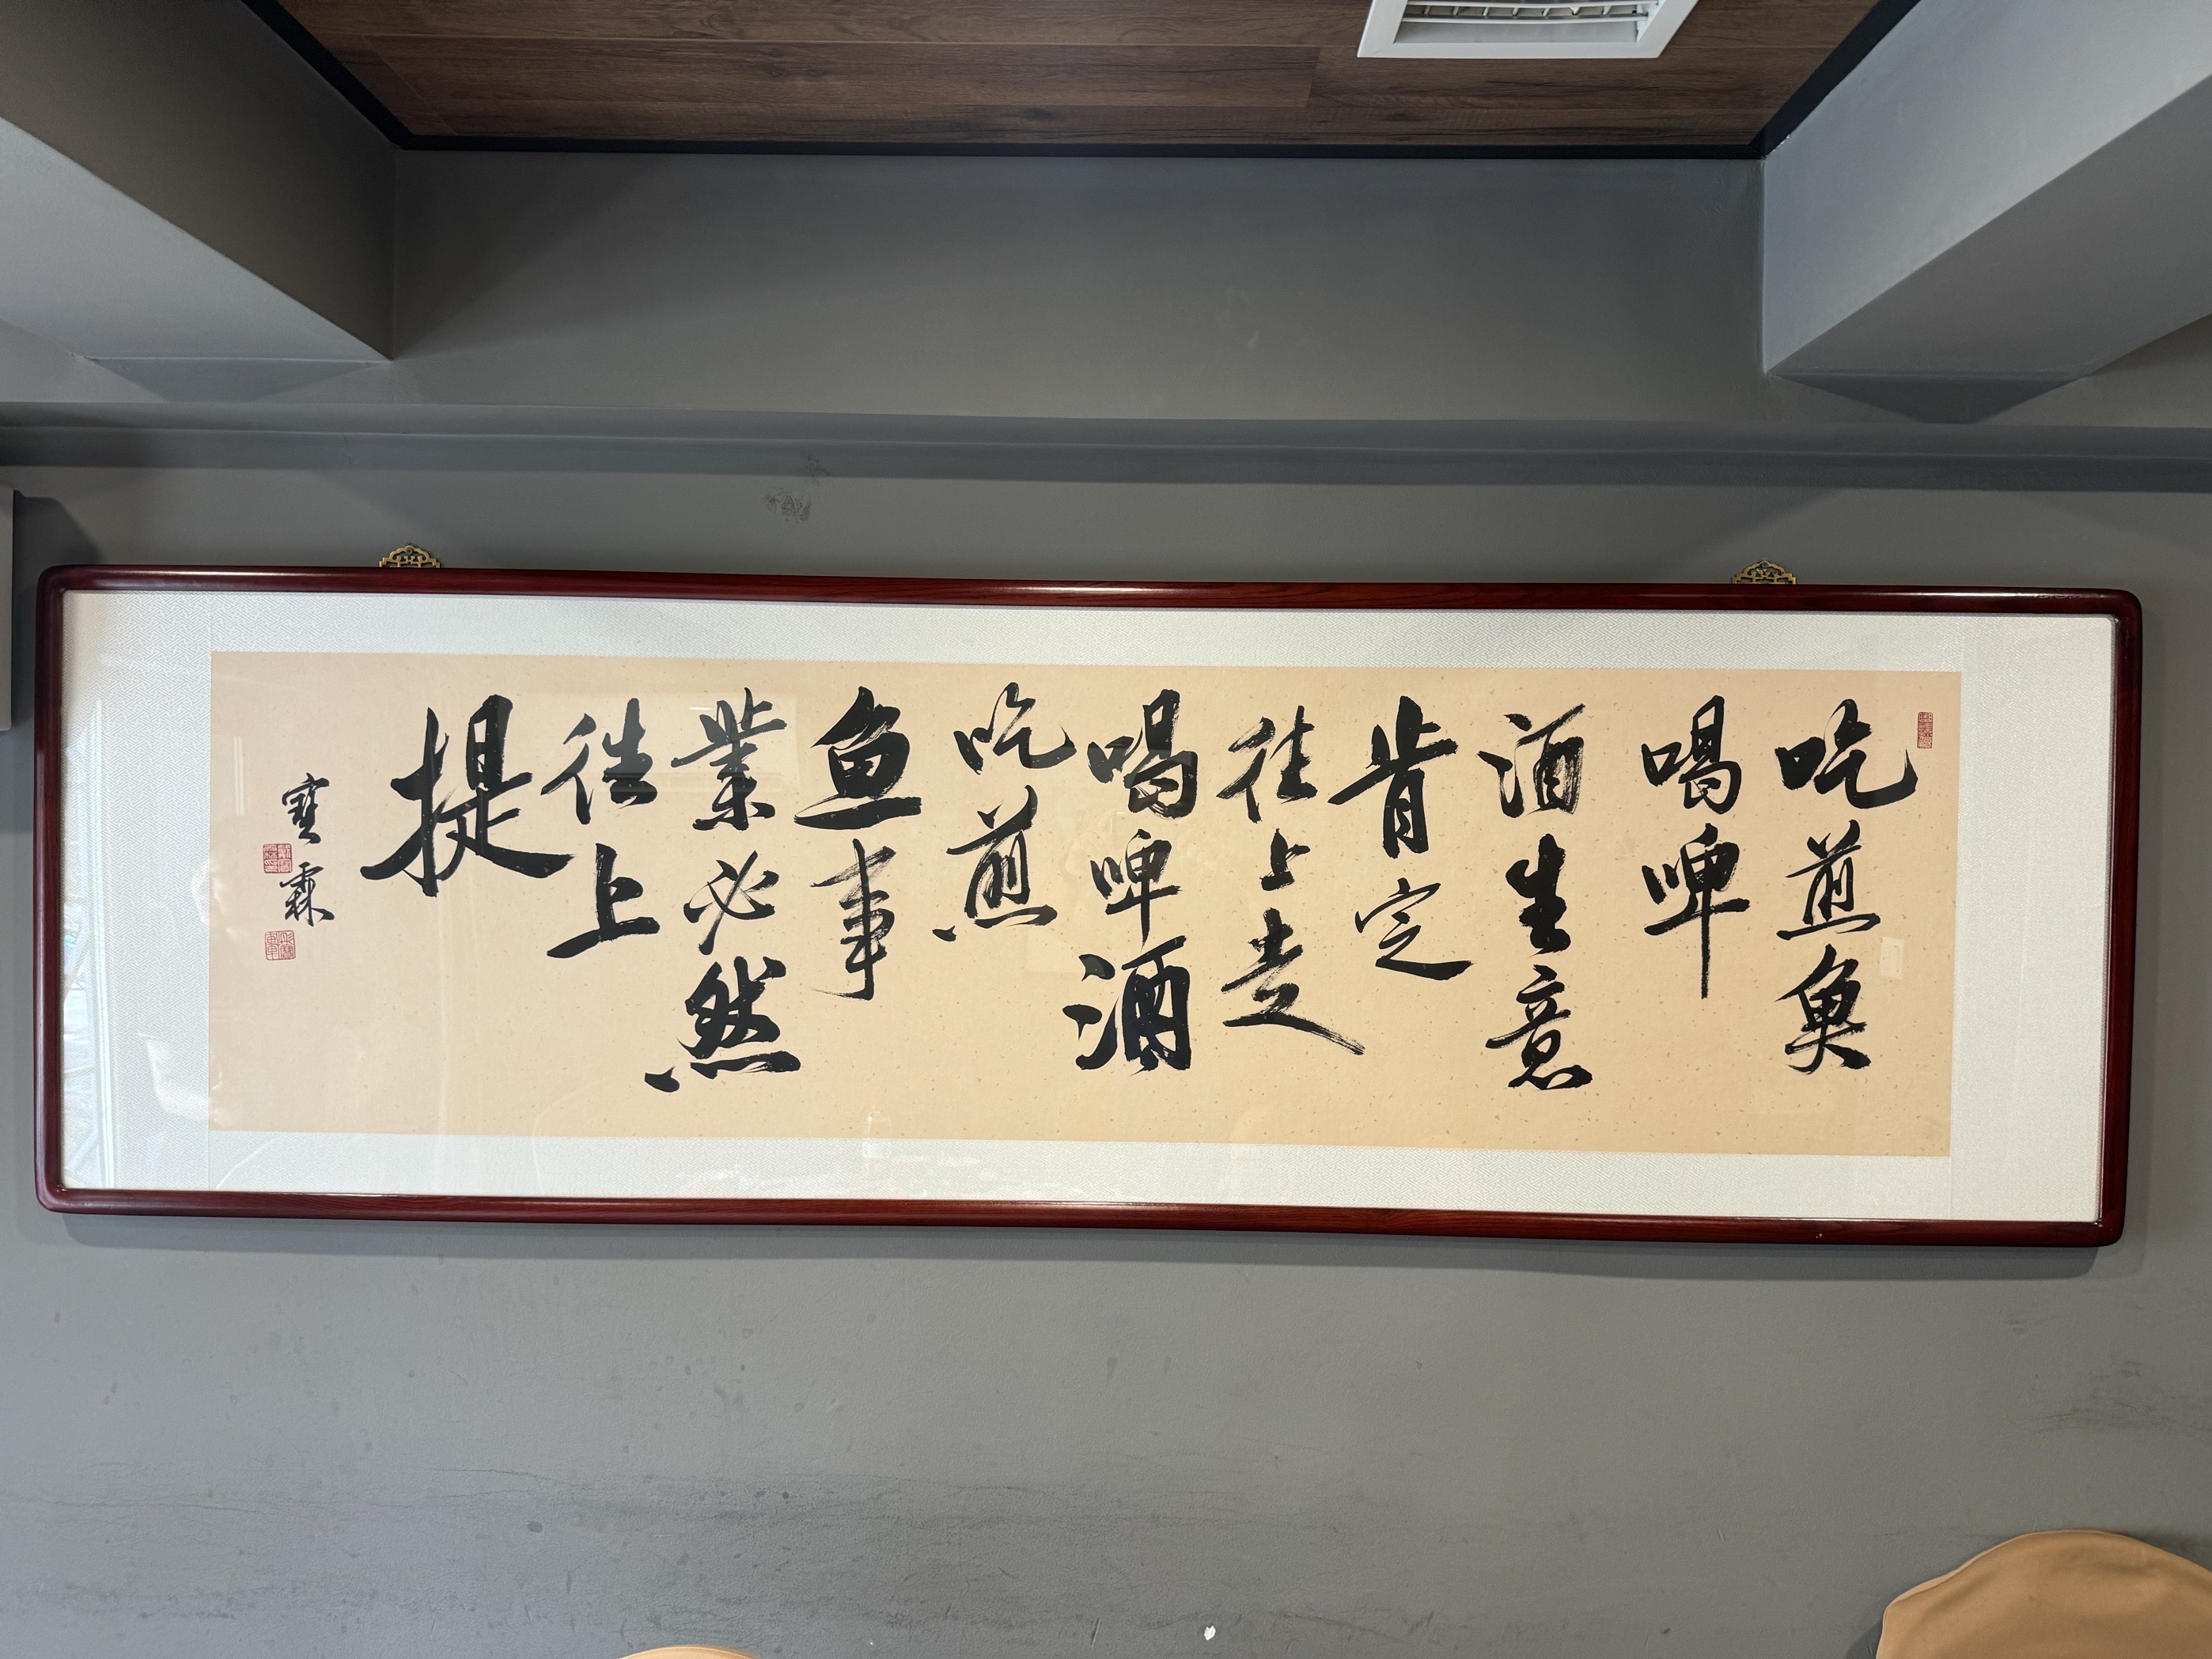 吃煎魚
喝啤
酒生意
肯定
往上走
喝啤酒
吃煎
鱼事
業必然
往上
提
寶霖